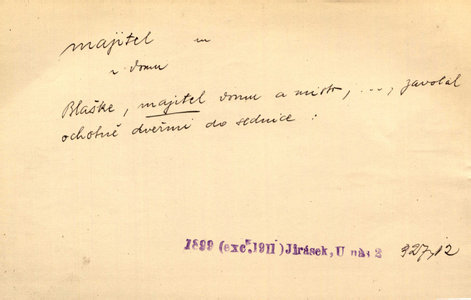 majitel m
z domu
Blaške, majitel domu a mistr, ..., zavolal
ochotně dveřmi do sednice :
1899 (exc. 1911) Jirásek, U nás 2 327,12